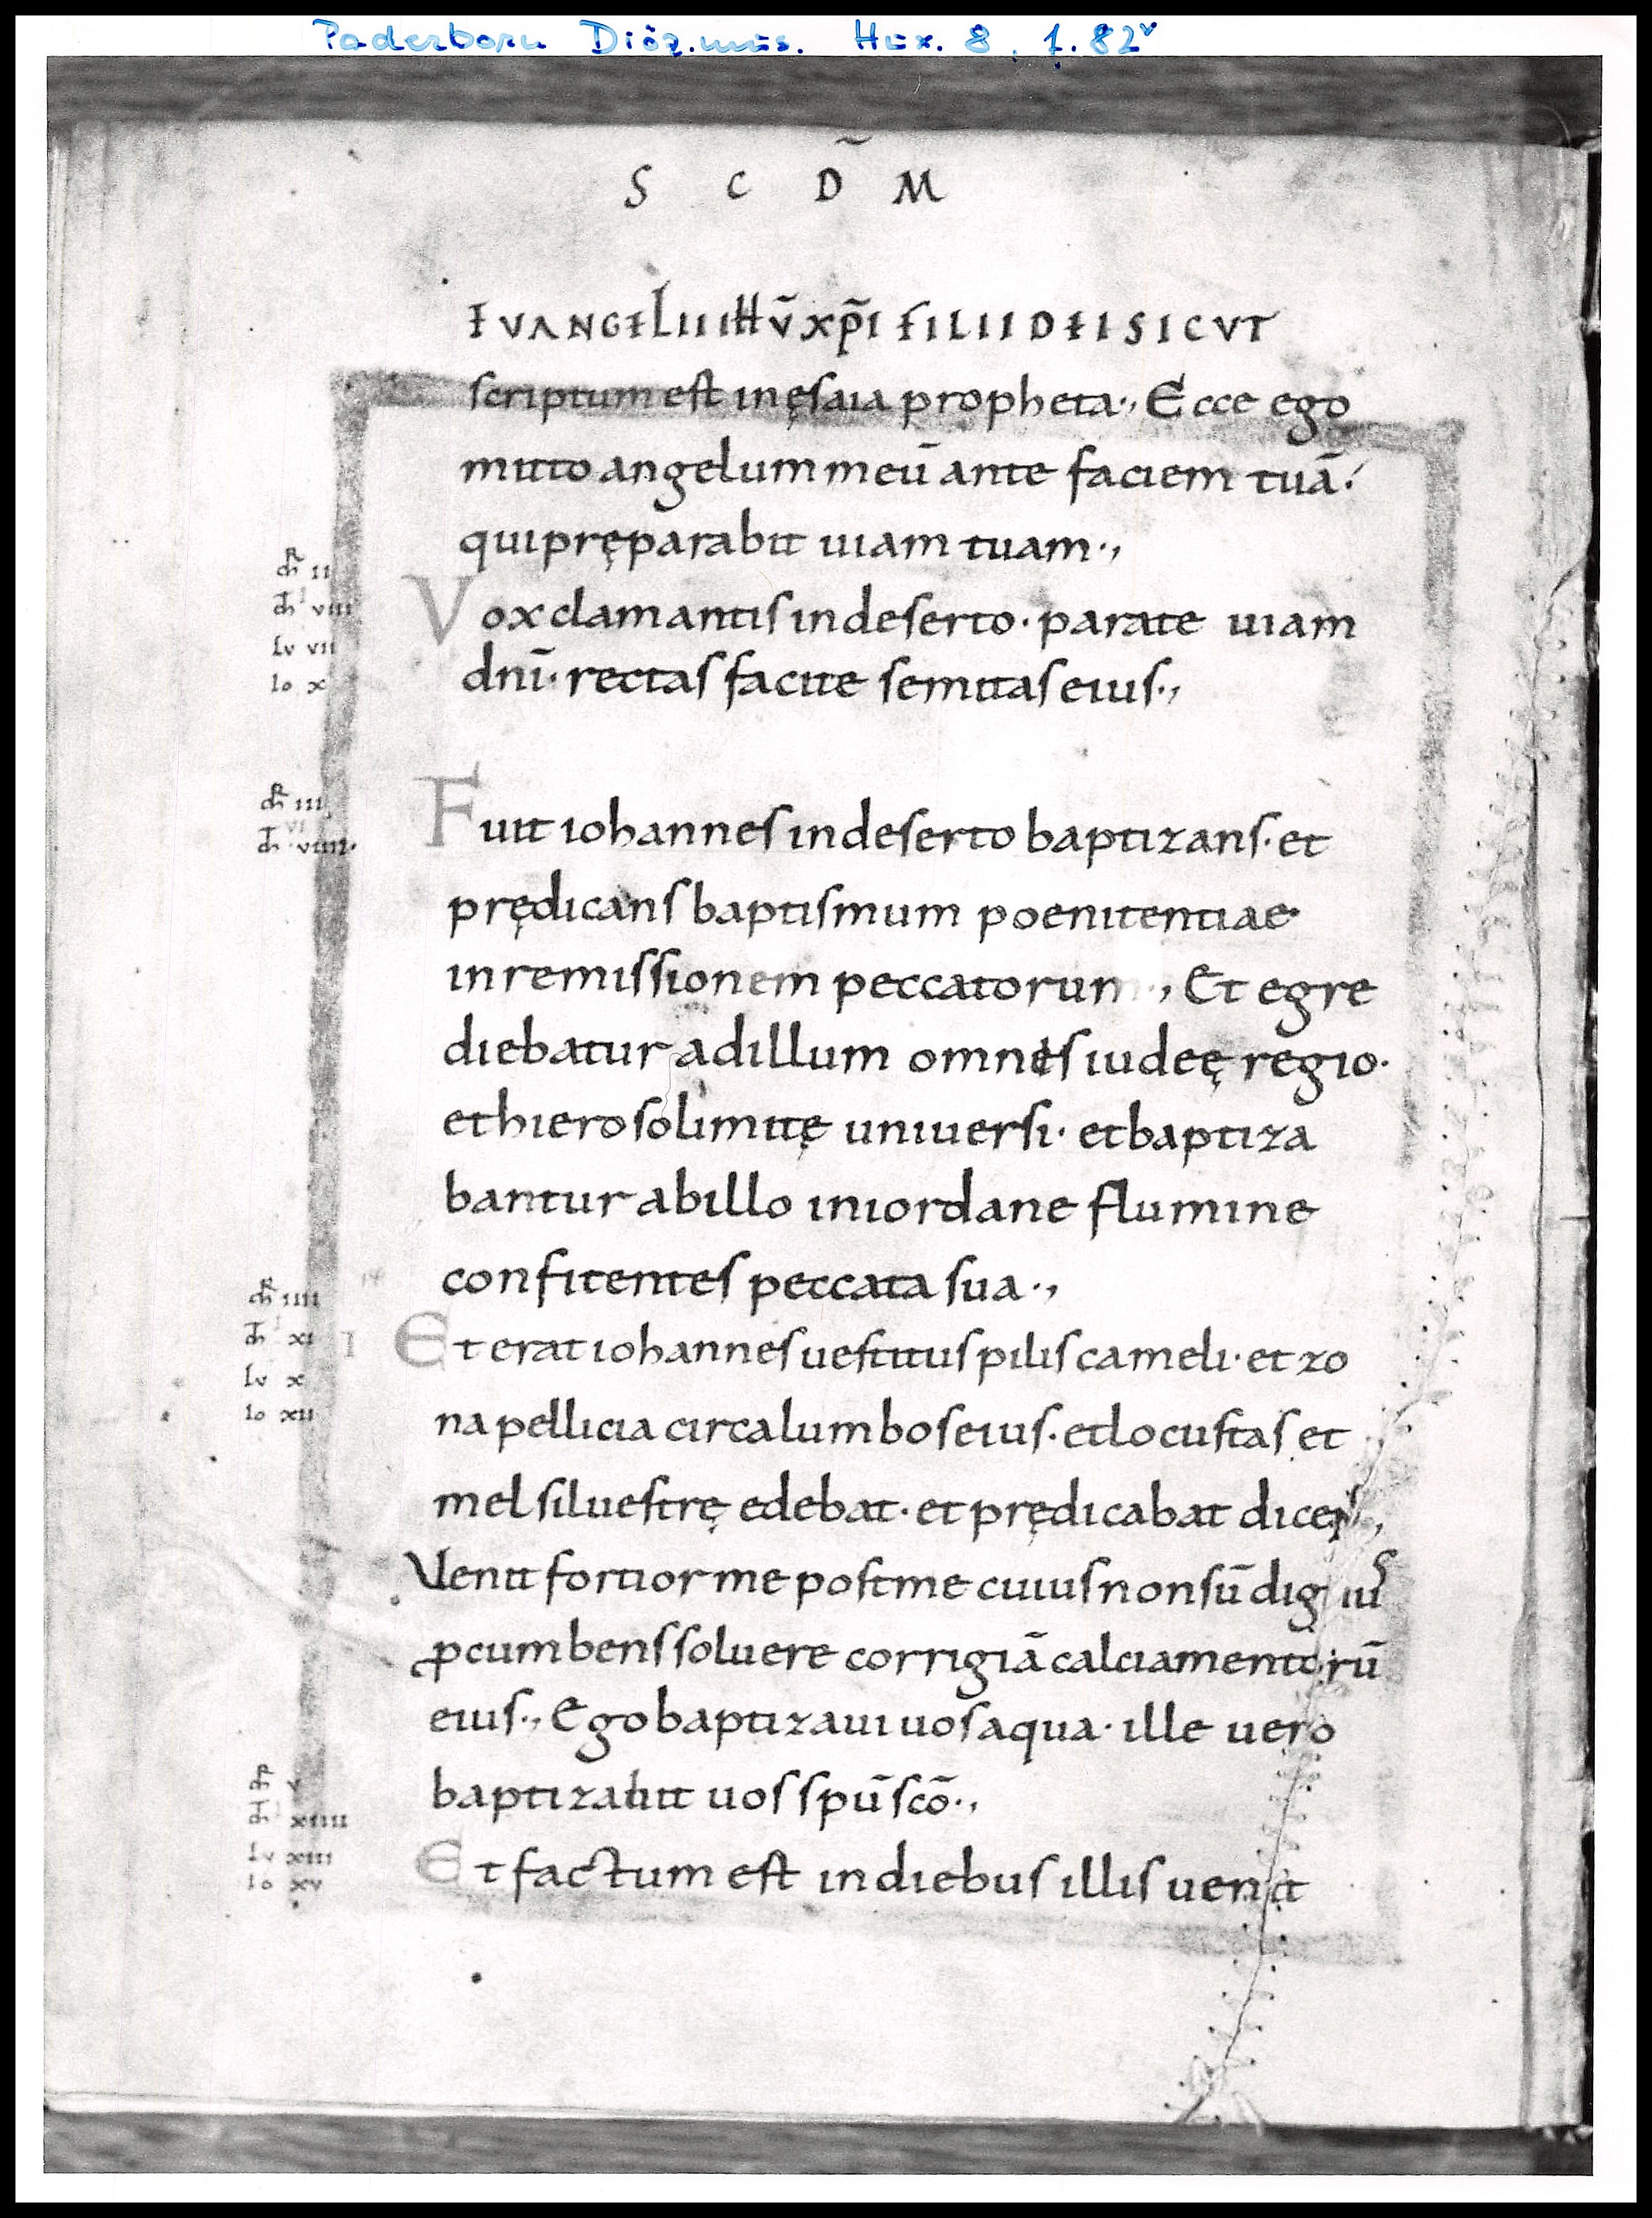 Paderborn Diöz.mus. Hux. 8, f. 82v
S C D̄ M
EVANGELII IHŪ XP̄I FILII DEI SICVT
scriptum est in ęsaia propheta., Ecce ego
mitto angelum meū ante faciem tuā.
qui pręparabit uiam tuam.,
mr̄ II
mt̄ VIII
Lv VII
Io X
Vox clamantis in deserto. parate uiam
dnī. rectas facite semitas eius.,
mr̄ III
mt̄ VIIII.
Fuit iohannes in deserto baptizans. et
prędicans baptismum poenitentiae
in remissionem peccatorum., Et egre
diebatur ad illum omnis iudeę regio.
et hierosolimitę uniuersi. et baptiza
bantur ab illo in iordane flumine
confitentes peccata sua.,
mr̄ IIII
mt̄ XI
Lv X
Io XII
Et erat iohannes uestitus pilis cameli. et zo
na pellicia circa lumbos eius. et locustas et
mel siluestrę edebat. et prędicabat dicens.,
Uenit fortior me post me cuius non sū dignus
ꝓcumbens soluere corrigiā calciamentorū
eius., Ego baptizaui uos aqua. ille uero
baptizabit uos spū scō.,
mr̄ V
mt̄ XIIII
Lv XIII
Io XV
Et factum est in diebus illis uenit